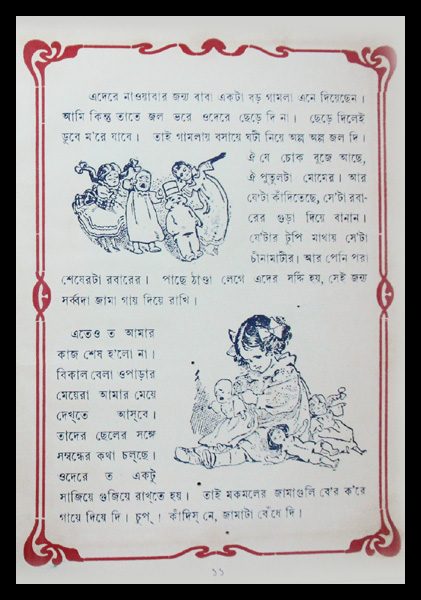 এদেরে নাওয়াবার জন্য বাবা একটা বড় গামলা এনে দিয়েছেন।
আমি কিন্তু তাতে জল ভরে ওদেরে ছেড়ে দি না। ছেড়ে দিলেই
ডুবে ম'রে যাবে। তাই গামলায় বসায়ে ঘটী নিয়ে অল্প অল্প জল দি।
ঐ যে চোক বুজে আছে,
ঐ পুতুলটা মোমের। আর
যে'টা কাঁদিতেছে, সে'টা রবা-
রের গুড়া দিয়ে বানান।
যে'টার টুপি মাথায় সে'টা
চীনামাটীর। আর পেনি পরা
শেষেরটা রবারের। পাছে ঠাণ্ডা লেগে এদের সর্দ্দি হয়, সেই জন্য
সর্ব্বদা জামা গায় দিয়ে রাখি।
এতেও ত আমার
কাজ শেষ হ'লো না।
বিকাল বেলা ওপাড়ার
মেয়েরা আমার মেয়ে
দেখ্‌তে আস্‌বে।
তাদের ছেলের সঙ্গে
সম্বন্ধের কথা চল্‌ছে।
ওদেরে ত একটু
সাজিয়ে গুজিয়ে রাখ্‌তে হয়। তাই মকমলের জামাগুলি বে'র ক'রে
গায়ে দিয়ে দি। চুপ্‌! কাঁদিস্‌ নে, জামাটা বেঁধে দি।
১১